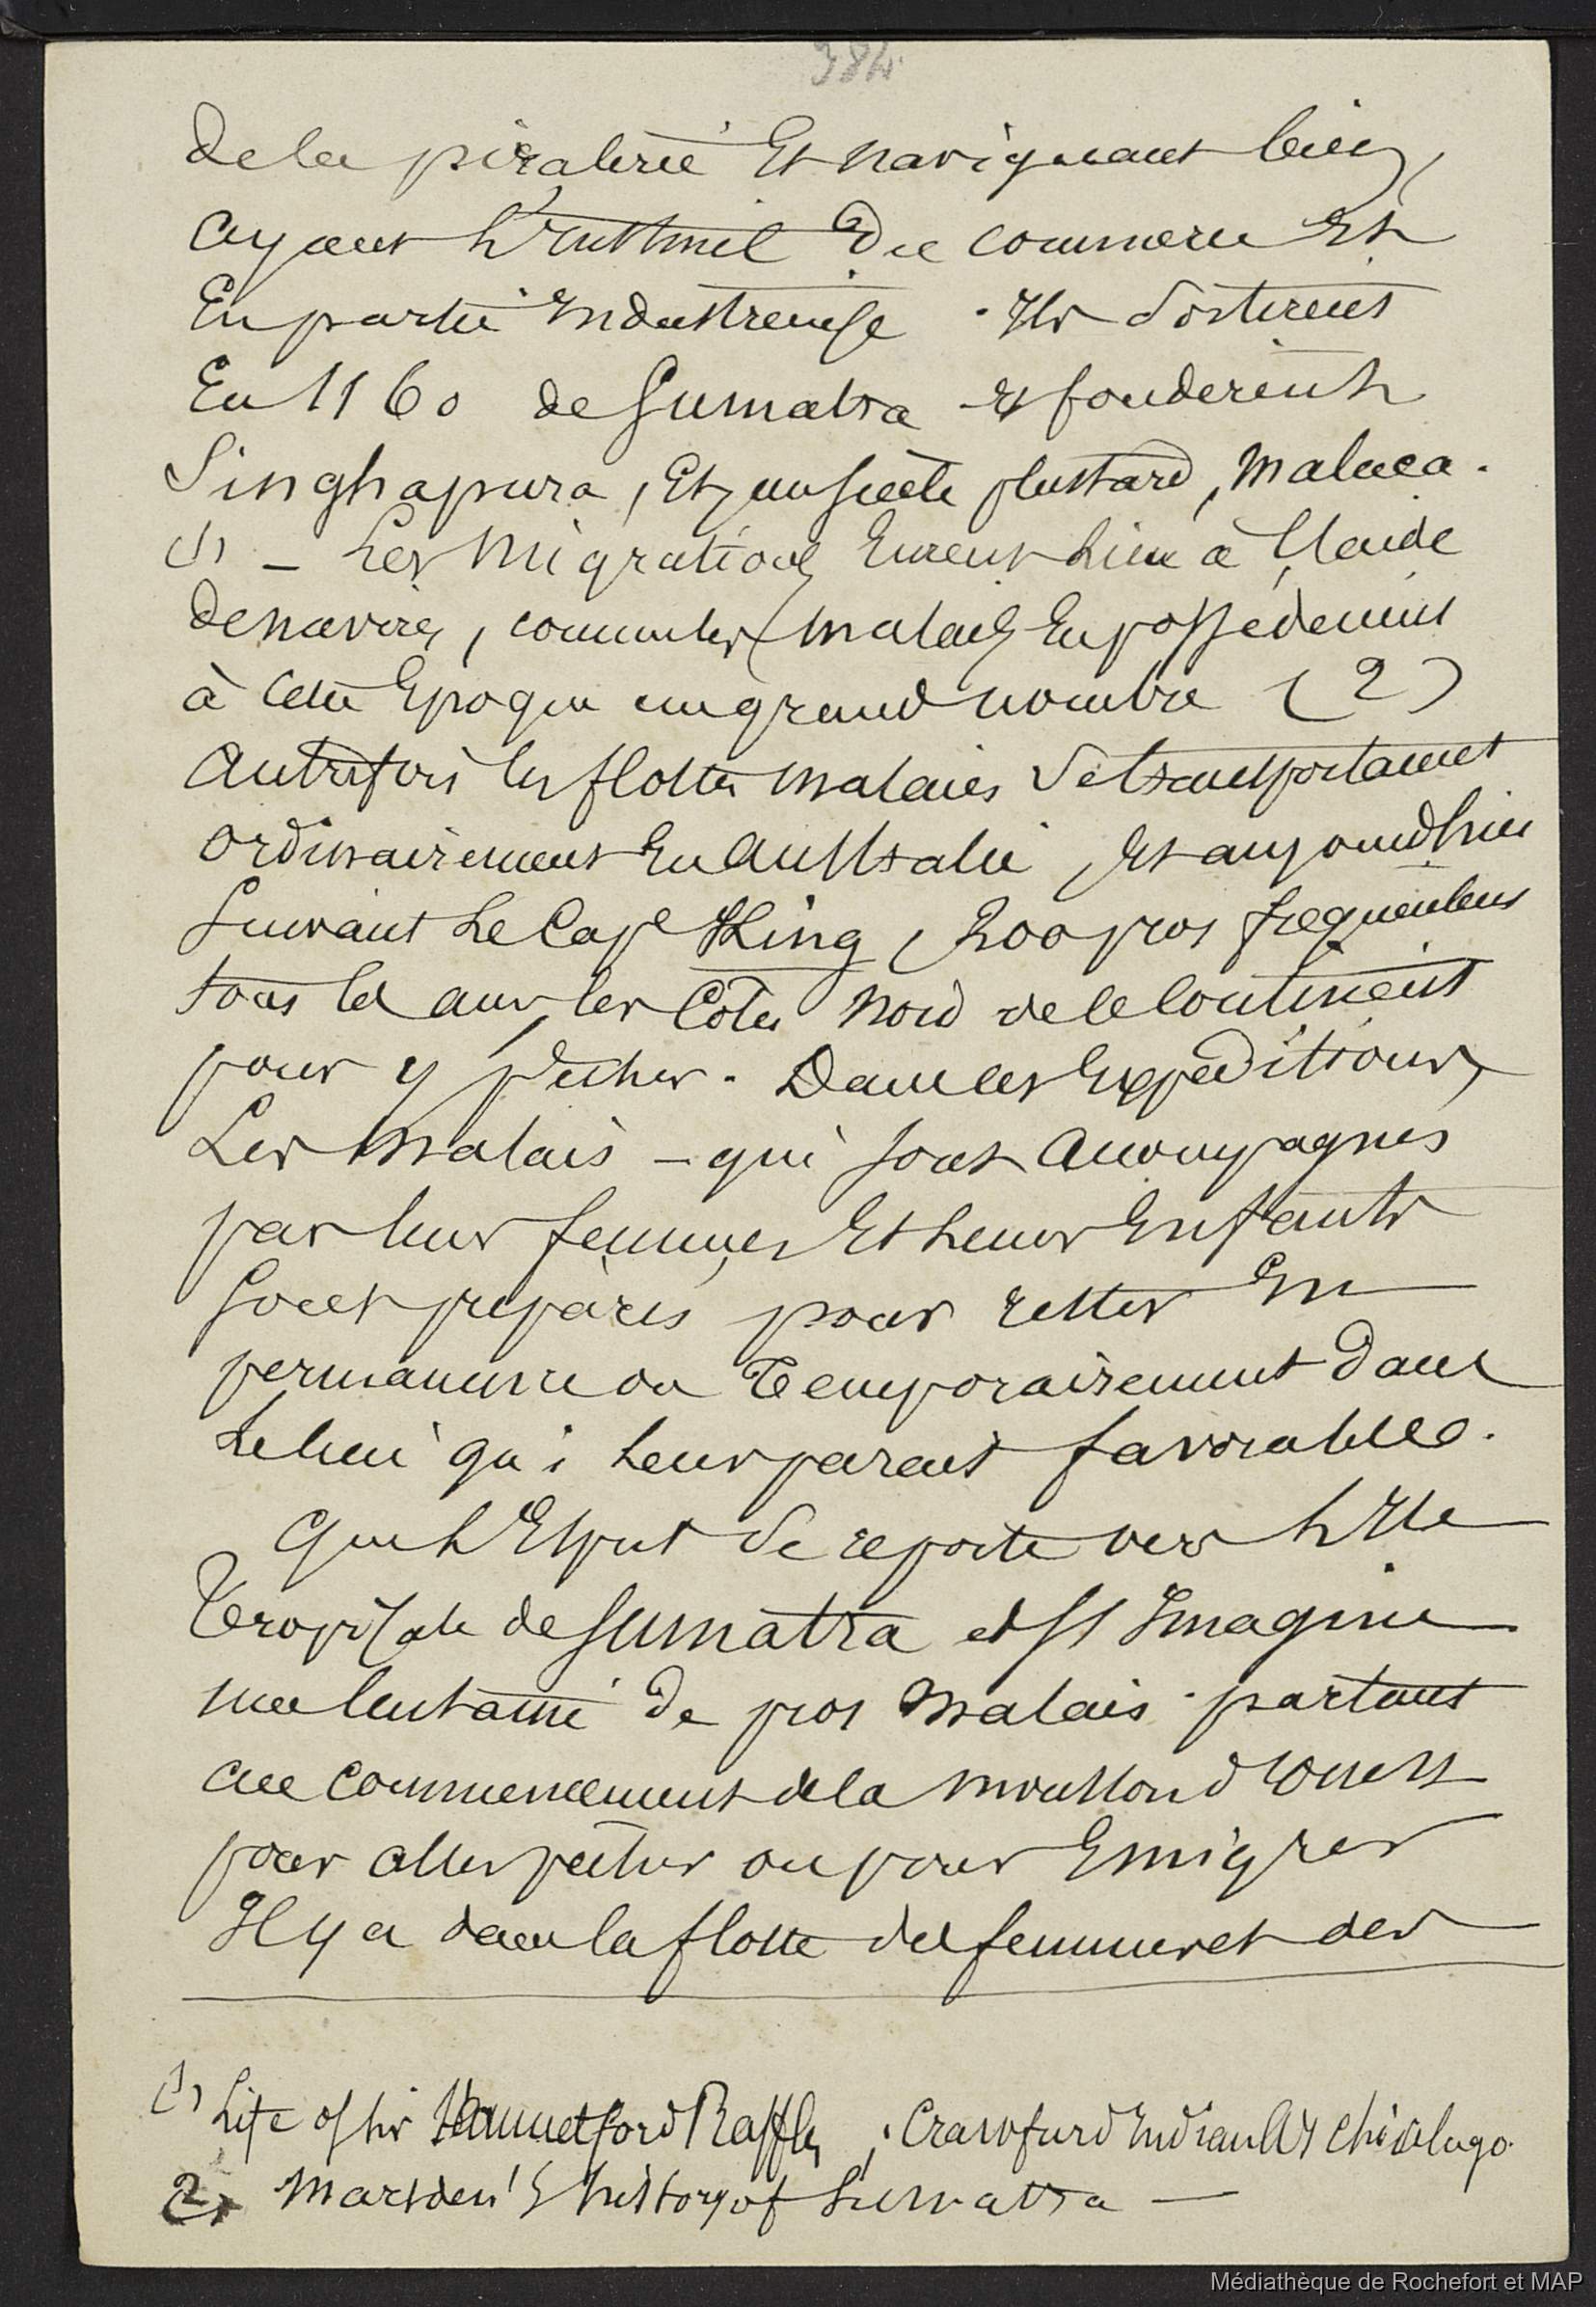 384
de la piraterie Et naviguant bien,
ayant l'instinct du commerce Et
En partie industrieuse. Ils sortirent
En 1160 de Sumatra et fonderent
Singhapura, Et, un siècle plus tard, Malaca.
(1) – Les Migrations Eurent lieu à l'aide
de navires, comme les Malais En possédaient
à cette Epoque un grand nombre (2)
Autrefois les flottes malaies se transportaient
ordinairement En Australie, Et aujourd'hui
suivant le Cap King, 200 pros frequentent
tous les ans, les Côtes Nord de le Continent
pour y pêcher. Dans ces Expeditions,
Les Malais – qui sont accompagnés
par leurs femmes Et leurs Enfants
sont préparés pour rester En
permanence ou temporairement dans
le lieu qui leur parait favorable.
Que l'Esprit se reporte vers l'Ile
Tropicale de Sumatra et s'Imagine
une centaine de pros Malais partant
au commencement de la mousson d'ouest
pour aller pêcher ou pour Emigrer
Il y a dans la flotte des femmes et des
(1) Life of Sir Stamford Raffles; Crawfurd Indian Archipelago
2) Marsden's history of Sumatra –
Médiathèque de Rochefort et MAP